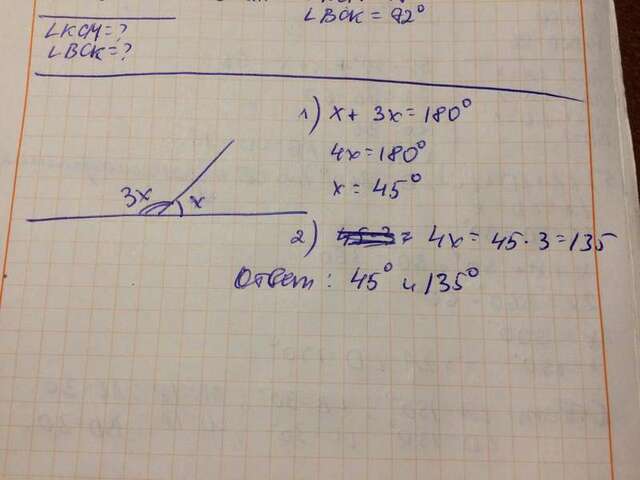 ∠KOM=?
∠BOK=?
∠BOK = 92°
3x
x
1) x + 3x = 180°
4x = 180°
x = 45°
2) = 4x = 45 · 3 = 135
Ответ: 45° и 135°